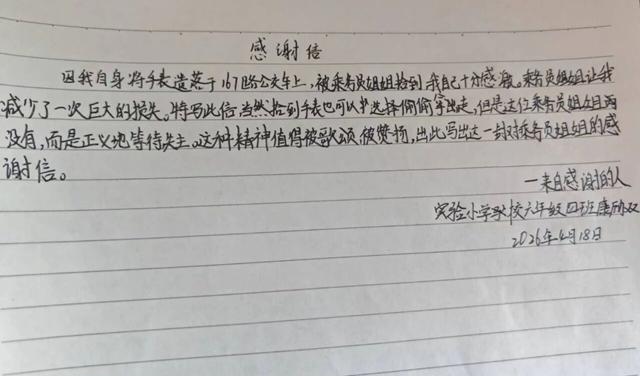 感谢信
因我自身将手表遗落于167路公交车上,被乘务员姐姐拾到我自己十分感激。乘务员姐姐让我
减少了一次巨大的损失。特写此信,当然拾到手表也可以选择偷偷拿出走,但是这位乘务员姐姐而
没有,而是正义地等待失主。这种精神值得被歌颂,被赞扬,出此写出达一封对乘务员姐姐的感
谢信。
一来自感谢的人
实验小学 校六年级四班康
2026年4月18日